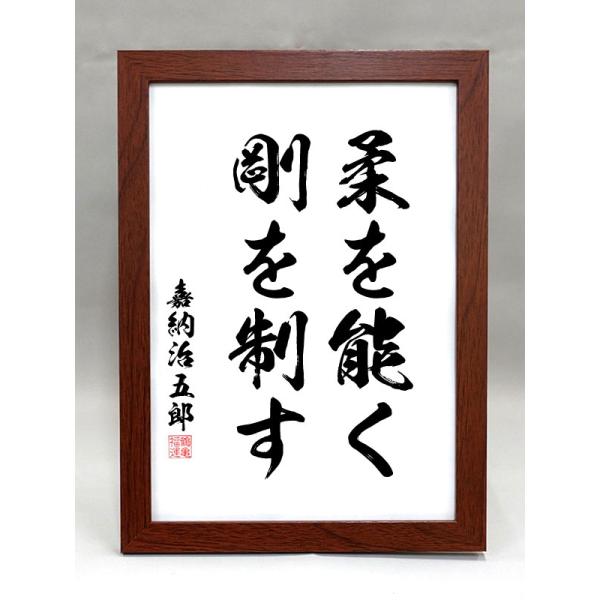 柔を能く
剛を制す
嘉納治五郎